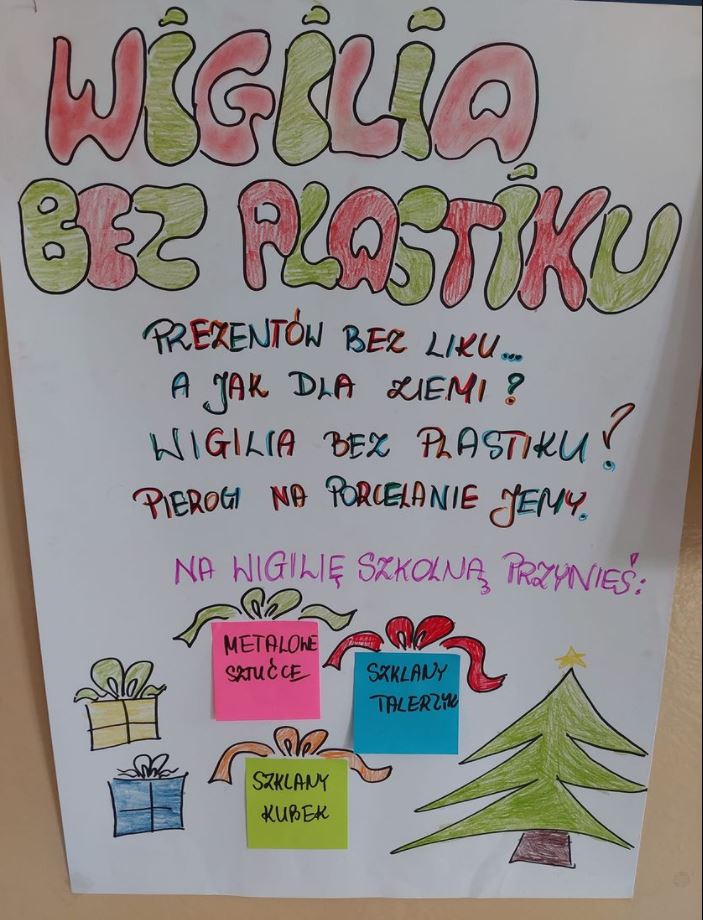 WIGILIA
BEZ PLASTIKU
PREZENTÓW BEZ LIKU...
A JAK DLA ZIEMI?
WIGILIA BEZ PLASTIKU?
PIEROGI NA PORCELANIE JEMY.
NA WIGILIĘ SZKOLNĄ PRZYNIEŚ:
METALOWE
SZTUĆCE
SZKLANY
TALERZYK
SZKLANY
KUBEK